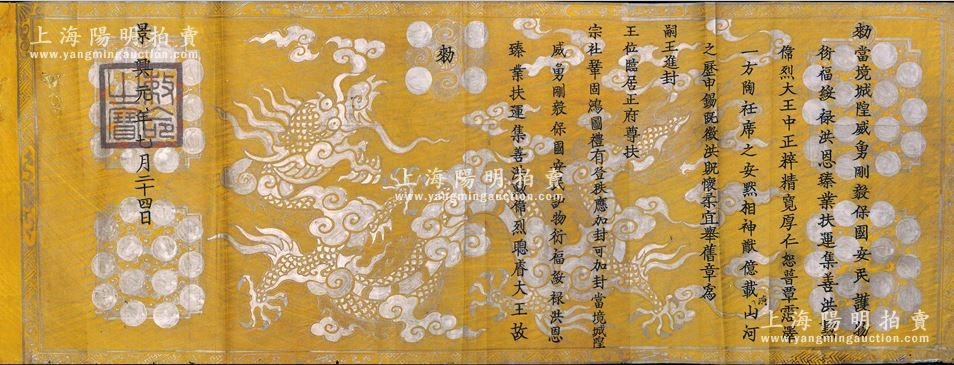 勑當境城隍威勇剛毅保國安民護物
衍福綏祿洪恩臻業扶運集善洪
偉烈大王中正粹精寬厚仁恕普覃霑澤
一方陶衽席之安黙相神猷億載山河
之歷申錫旣徵洪貺懷柔宜舉舊章爲
嗣王進封
王位臨居正府尊扶
宗社鞏固鴻圖禮有登秩應加封可加封當境城隍
威勇剛毅保國安民護物衍福綏祿洪恩
臻業扶運集善洪偉烈聰睿大王故
勑
景興年七月二十四日
敕命之寶
上海陽明拍賣
www.yangmingauction.com
上海陽明拍賣
www.yangmingauction.com
上海陽明拍賣
www.yangmingauction.com